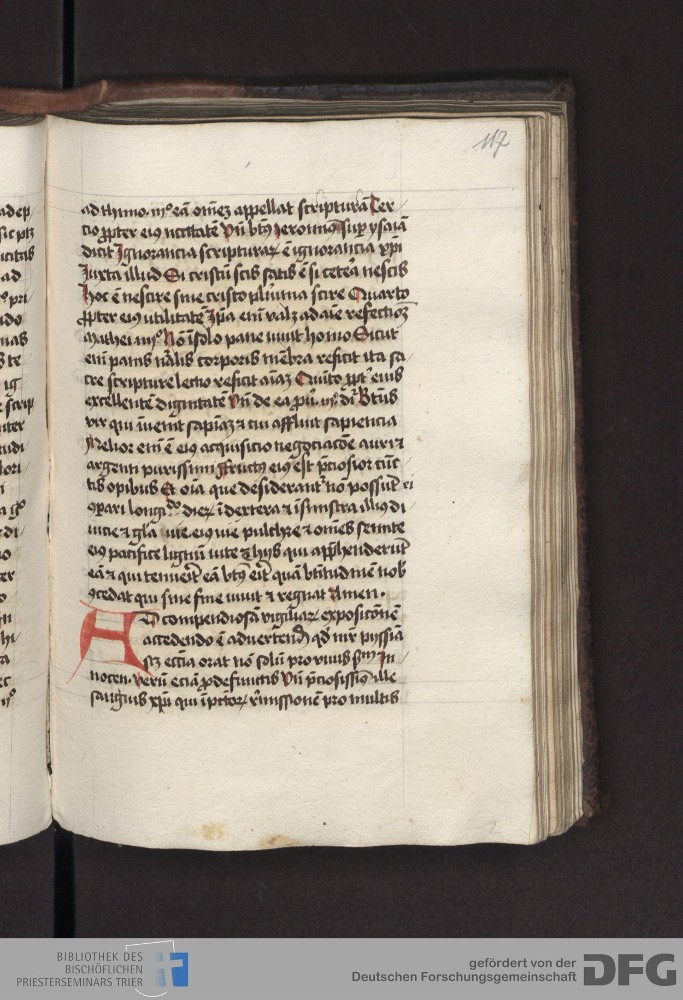 117
ad thimo. iijº eā om̄ez appellat scripturā Ter
cio ꝓpter eiꝰ vtilitatē Vn̄ btꝰ Jeronimꝰ suꝑ ysaiā
dicit Ignorancia scripturaꝝ ē ignorancia xp̄i
Juxta illud Si cristū scis satis ē si cetera nescis
Hoc ē nescire sine cristo plurima scire Quarto
ꝓpter eiꝰ utilitatē Ip̄a eni valꝫ ad aīe refectioēꝫ
mathei iiijº Nō ī solo pane viuit homo Sicut
eni panis nālis corporis mēbra reficit ita sa
cre scripture lectio reficit aīaꝫ Quīto ꝓpt eius
excellentē dignitatē Vn̄ de ea ꝓū. iijº dr̄ Btūs
vir qui īuenit sapiāꝫ ⁊ cui affluit sapiencia
Melior eni ē eiꝰ acquisicio negociacōe auri ⁊
argenti purissimi ffructꝰ eiꝰ est p̄ciosior cūc
tis opibus Et oīa que desiderant nō possūt ei
ꝯpari longi dieꝝ ī dextera ⁊ ī sinistra illiꝰ di
uicie ⁊ glā vie eiꝰ vie pulchre ⁊ om̄es semite
eiꝰ pacifice lignū vite ē hijs qui apꝓhenderīt
eā ⁊ qui tenuerīt eā btꝰ erit quā btitudinē nob
ꝯcedat qui sine fine viuit ⁊ regnat Amen .
AD compendiosā vigiliaꝝ exposicōnē
accedendo ē aduertendū qd mr̄ pijssia
sꝫ ecc̄ia orat nō solū pro viuis sm In
nocen. verū eciā ꝓ defunctis Vn̄ p̄ciosissimꝰ ille
sanguis xp̄i qui ī pctōꝝ remissionē pro multis
BIBLIOTHEK DES
BISCHÖFLICHEN
PRIESTERSEMINARS TRIER
gefördert von der
Deutschen Forschungsgemeinschaft
DFG